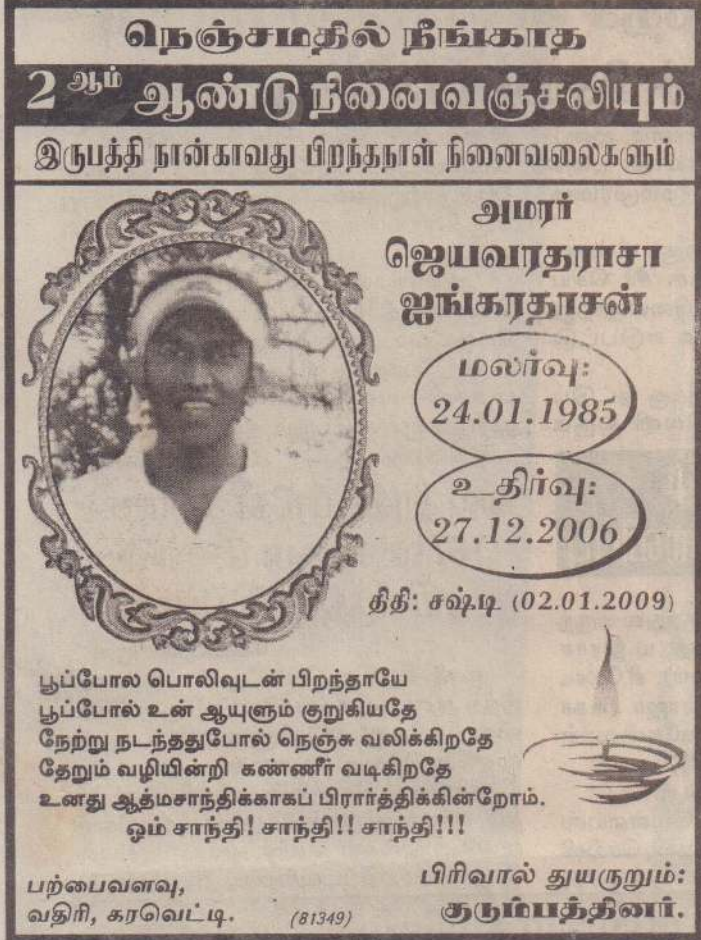 நெஞ்சமதில் நீங்காத
2 ஆம் ஆண்டு நினைவஞ்சலியும்
இருபத்தி நான்காவது பிறந்தநாள் நினைவலைகளும்
அமரர்
ஜெயவரதராசா
ஐங்கரதாசன்
மலர்வு:
24.01.1985
உதிர்வு:
27.12.2006
திதி: சஷ்டி (02.01.2009)
பூப்போல பொலிவுடன் பிறந்தாயே
பூப்போல் உன் ஆயுளும் குறுகியதே
நேற்று நடந்ததுபோல் நெஞ்சு வலிக்கிறதே
தேறும் வழியின்றி கண்ணீர் வடிகிறதே
உனது ஆத்மசாந்திக்காகப் பிரார்த்திக்கின்றோம்.
ஓம் சாந்தி! சாந்தி!! சாந்தி!!!
பற்பைவளவு,
வதிரி, கரவெட்டி.
(81349)
பிரிவால் துயருறும்:
குடும்பத்தினர்.